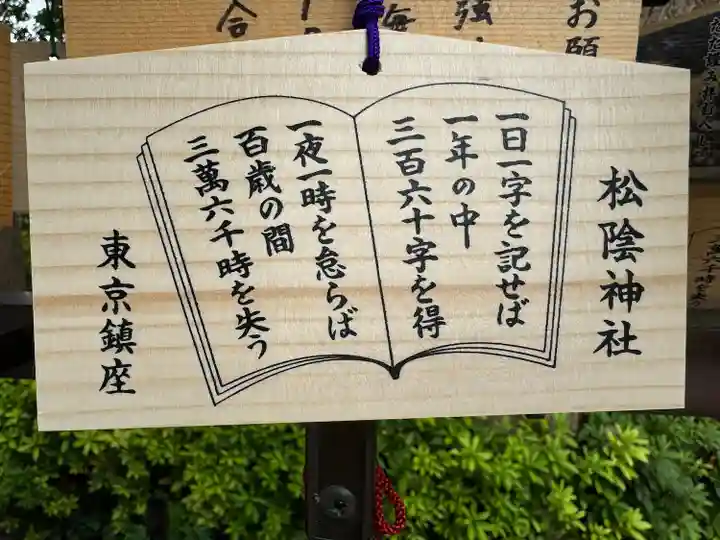 松陰神社
一日一字を記せば
一年の中
三百六十字を得
一夜一時を怠らば
百歳の間
三萬六千時を失う
東京鎮座
お願
強
合